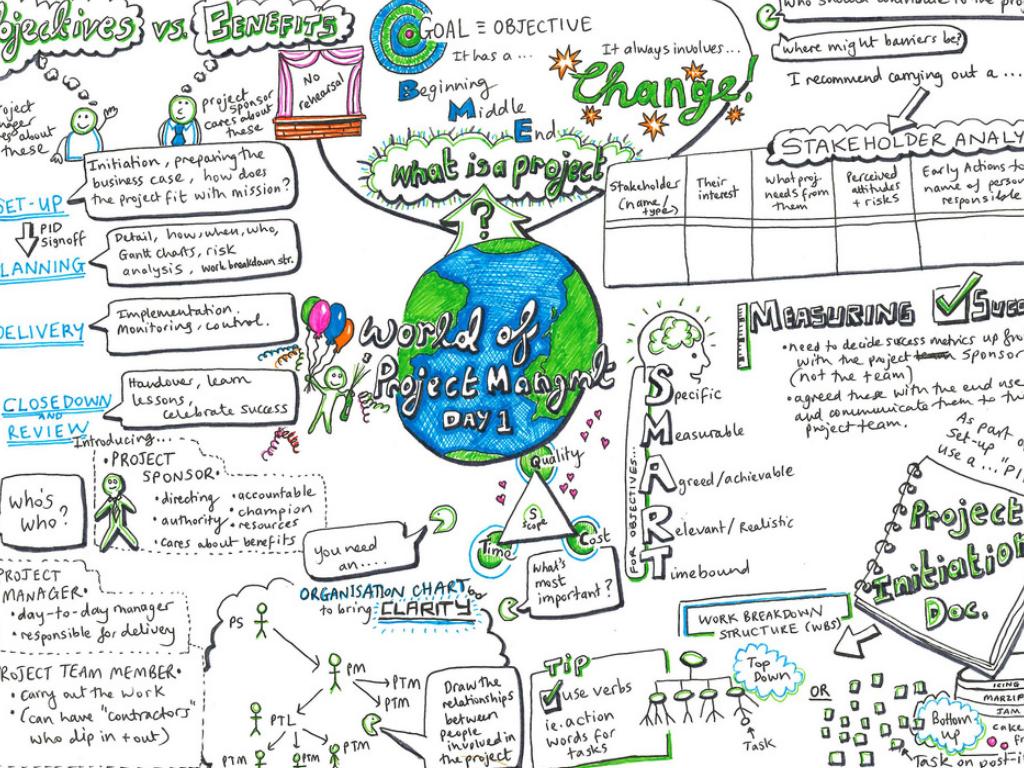 Objectives vs. BENEFITS
project manager cares about these
project sponsor cares about these
No rehearsal
GOAL = OBJECTIVE
It has a...
Beginning
Middle
End
It always involves...
Change!
What is a project
?
who should contribute to the
Where might barriers be?
I recommend carrying out a ...
STAKEHOLDER ANALY
Stakeholder (name/type)
Their interest
What proj. needs from them
Perceived attitudes + risks
Early Actions
name of person
responsible
SET-UP
Initiation, preparing the
business case, how does
the project fit with mission?
PID
Signoff
PLANNING
Detail, how, when, who,
Gantt charts, risk
analysis, work breakdown str.
DELIVERY
Implementation.
Monitoring, control.
CLOSEDOWN
AND
REVIEW
Handover, learn
lessons,
celebrate success
World of
Project Mangmt
DAY 1
MEASURING SUCC
• need to decide success metrics up
with the project sponsor
(not the team)
• agreed these with the end use
and communicate them to
project team.
FOR OBJECTIVES...
Specific
Measurable
Agreed/achievable
Relevant/Realistic
Timebound
As part of
set-up
use a ...
Project
Initiation
Doc.
Introducing...
WHO'S
WHO?
• PROJECT
SPONSOR •
• directing
• authority
• accountable
• champion
• resources
• cares about benefits
Quality
Scope
Time
Cost
What's
most
important?
You need
an....
PROJECT
MANAGER •
• day-to-day manager
• responsible for delivery
PROJECT TEAM MEMBER •
• carry out the work
• (can have "contractors"
who dip in + out)
ORGANISATION CHART
to bring CLARITY
PS
PM
PTM
PTM
PTL
PTM
PTM
PTM
Draw the
relationships
between
people
involved in
the project
TIP
use verbs
ie. action
words for
tasks
WORK BREAKDOWN
STRUCTURE (WBS)
Top
Down
Task
OR
Bottom
up
ICING
MARZIP
JAM
cake
Task on post-i